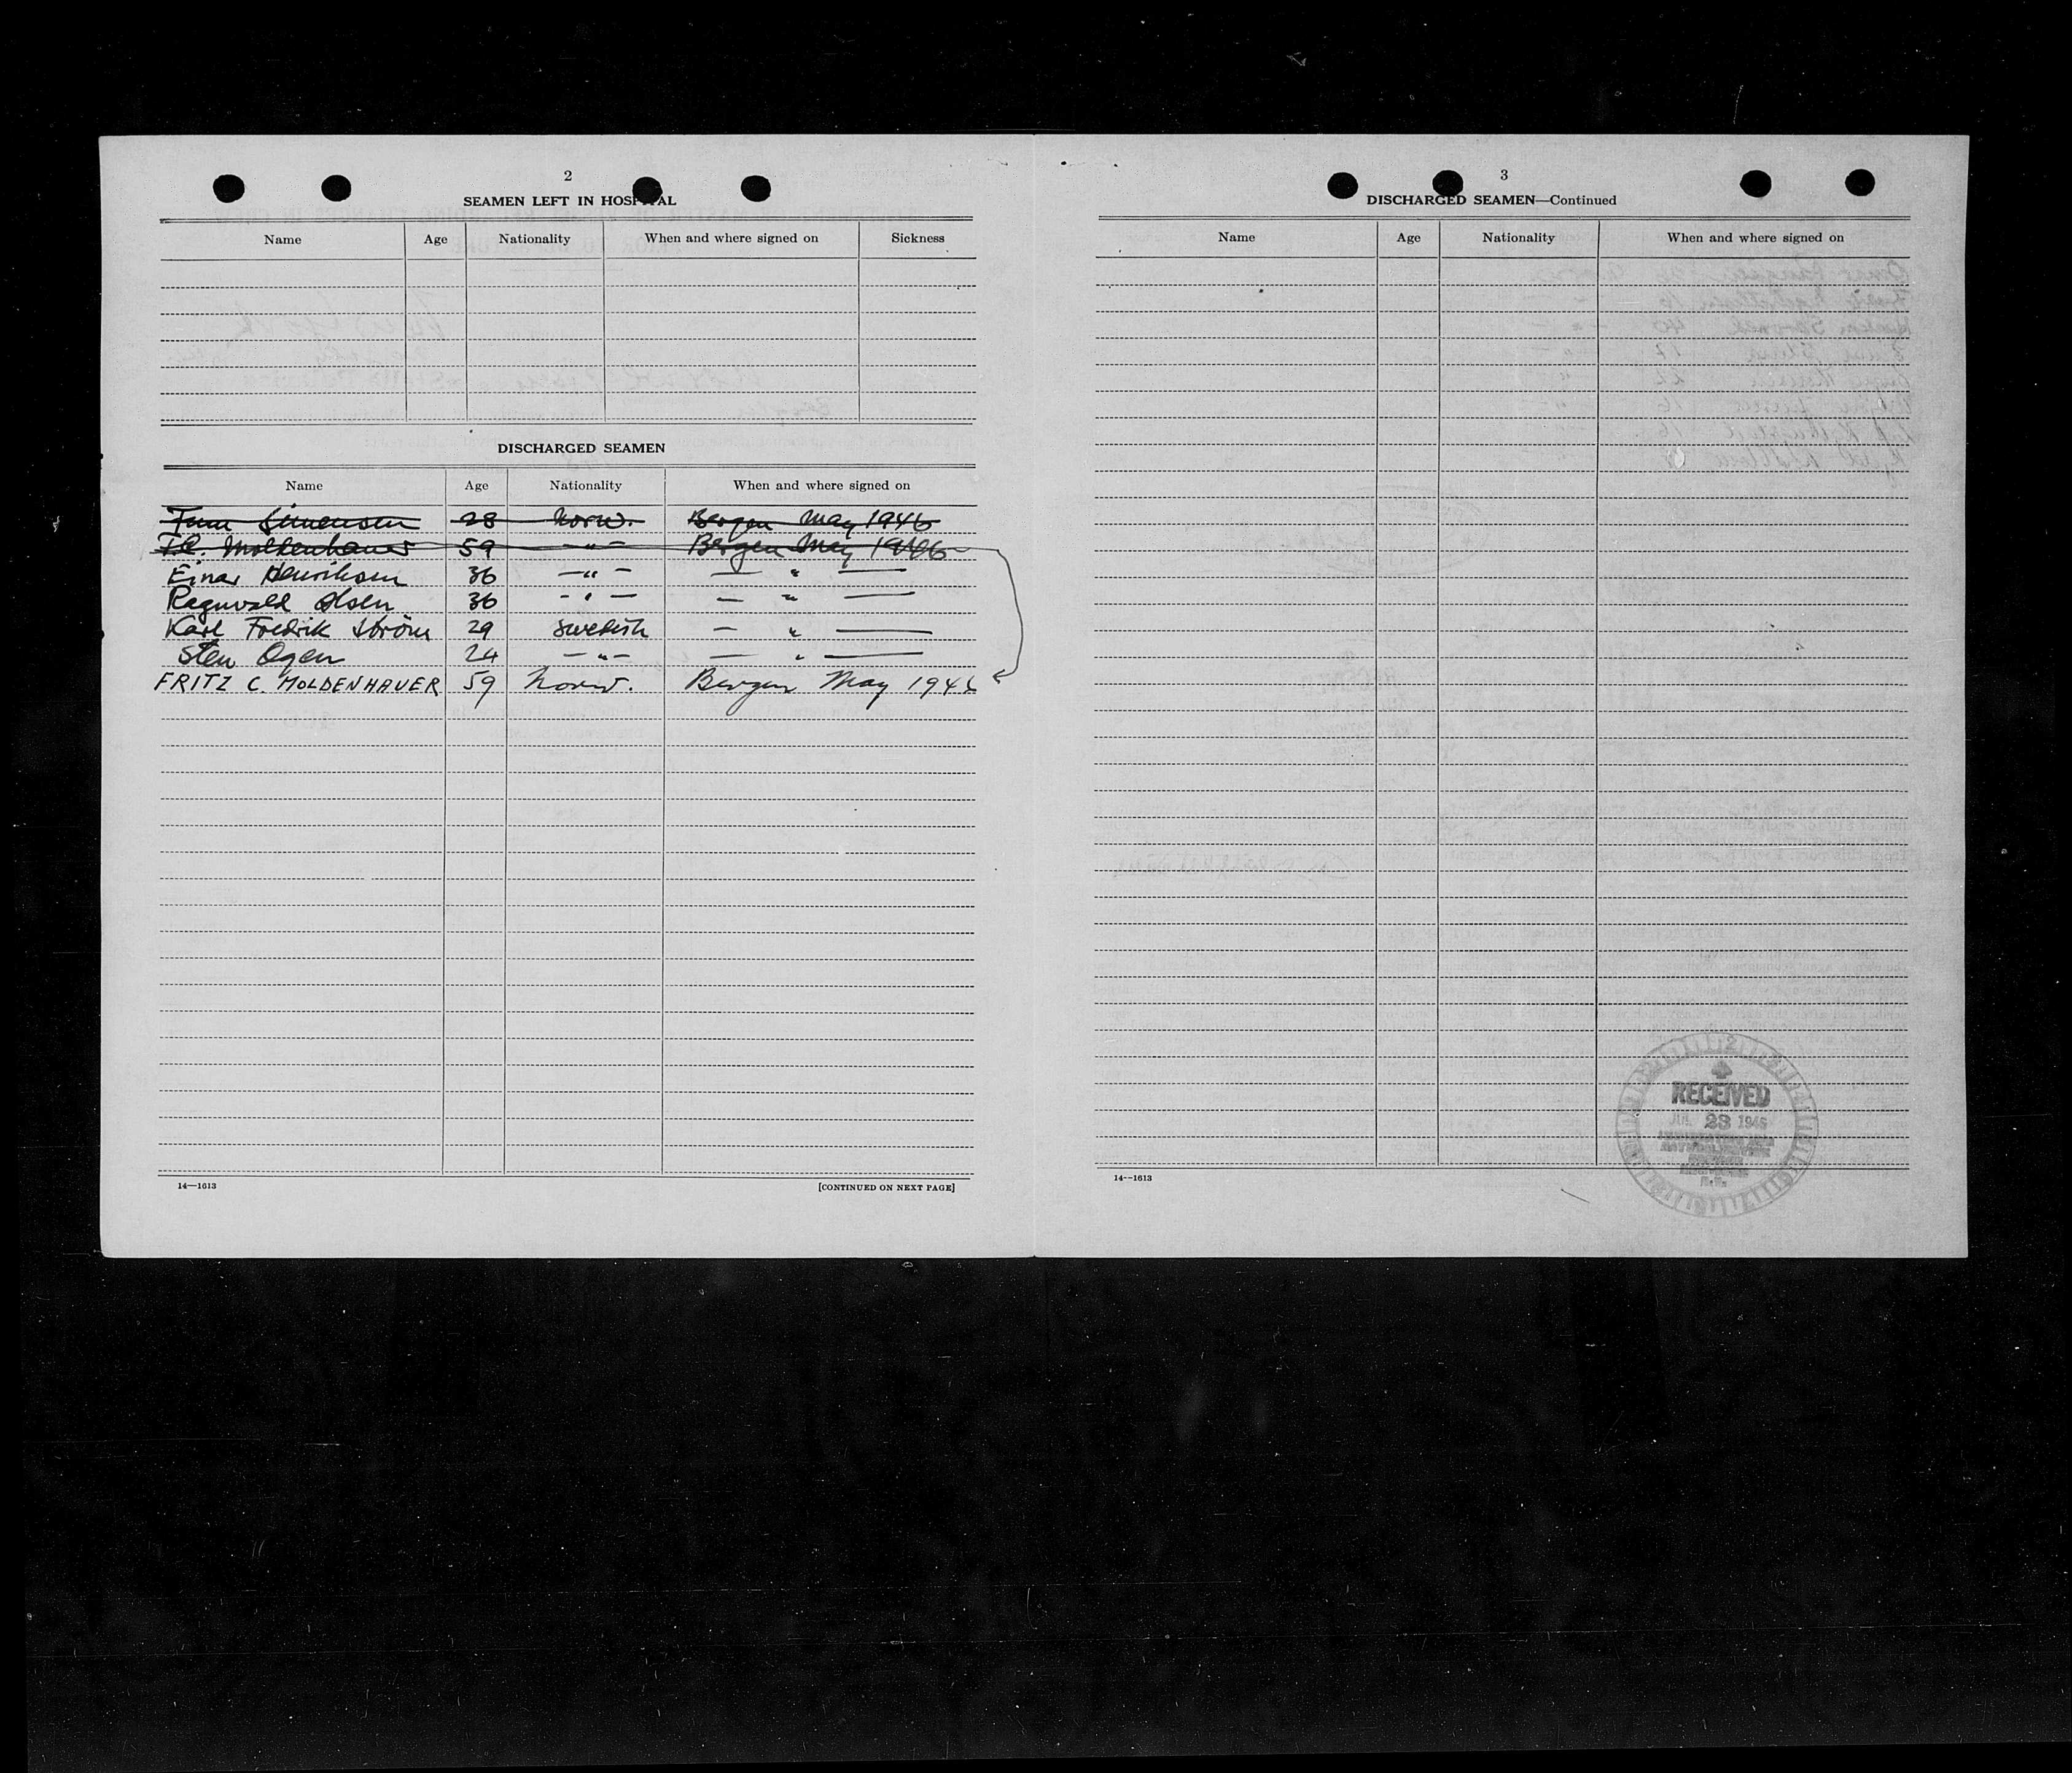 2
SEAMEN LEFT IN HOSPITAL
Name Age Nationality When and where signed on Sickness
DISCHARGED SEAMEN
Name Age Nationality When and where signed on
Finn Simensen 28 Norw. Bergen May 1946
F.C. Moldenhauer 59 —"— Bergen May 1946
Einar Henriksen 36 —"— — " —
Ragnvald Olsen 36 —"— — " —
Karl Fredrik Ström 29 Swedish — " —
Sten Ogen 24 —"— — " —
FRITZ C. MOLDENHAUER 59 Norw. Bergen May 1946
14—1613 [CONTINUED ON NEXT PAGE]
3
DISCHARGED SEAMEN—Continued
Name Age Nationality When and where signed on
RECEIVED
23 1946
14—1613